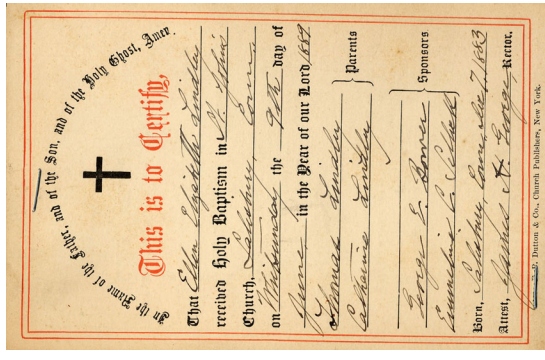 In the Name of the Father, and of the Son, and of the Holy Ghost, Amen.
This is to Certify,
That Ellen Elizabeth Lindley
received Holy Baptism in St. John's
Church, Salisbury, Conn.
on Whitsunday the 9th day of
June in the Year of our Lord 1889
Thomas Lindley
Catharine Lindley } Parents
George E. Bower
Sponsors
Born, Salisbury, Conn. Dec 7, 1883
Attest, A. George, Rector.
Dutton & Co., Church Publishers, New York.